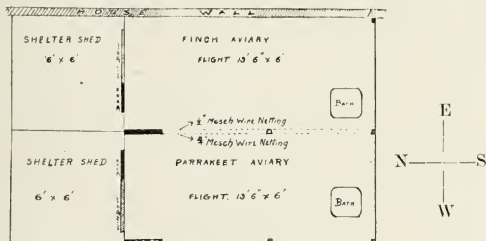 HOUSE WALL
SHELTER SHED
6' x 6'
FINCH AVIARY
FLIGHT 13' 6" x 6'
BATH
½" Mesch Wire Netting
¾" Mesch Wire Netting
SHELTER SHED
6' x 6'
PARRAKEET AVIARY
FLIGHT. 13' 6" x 6'
BATH
E
N
S
W